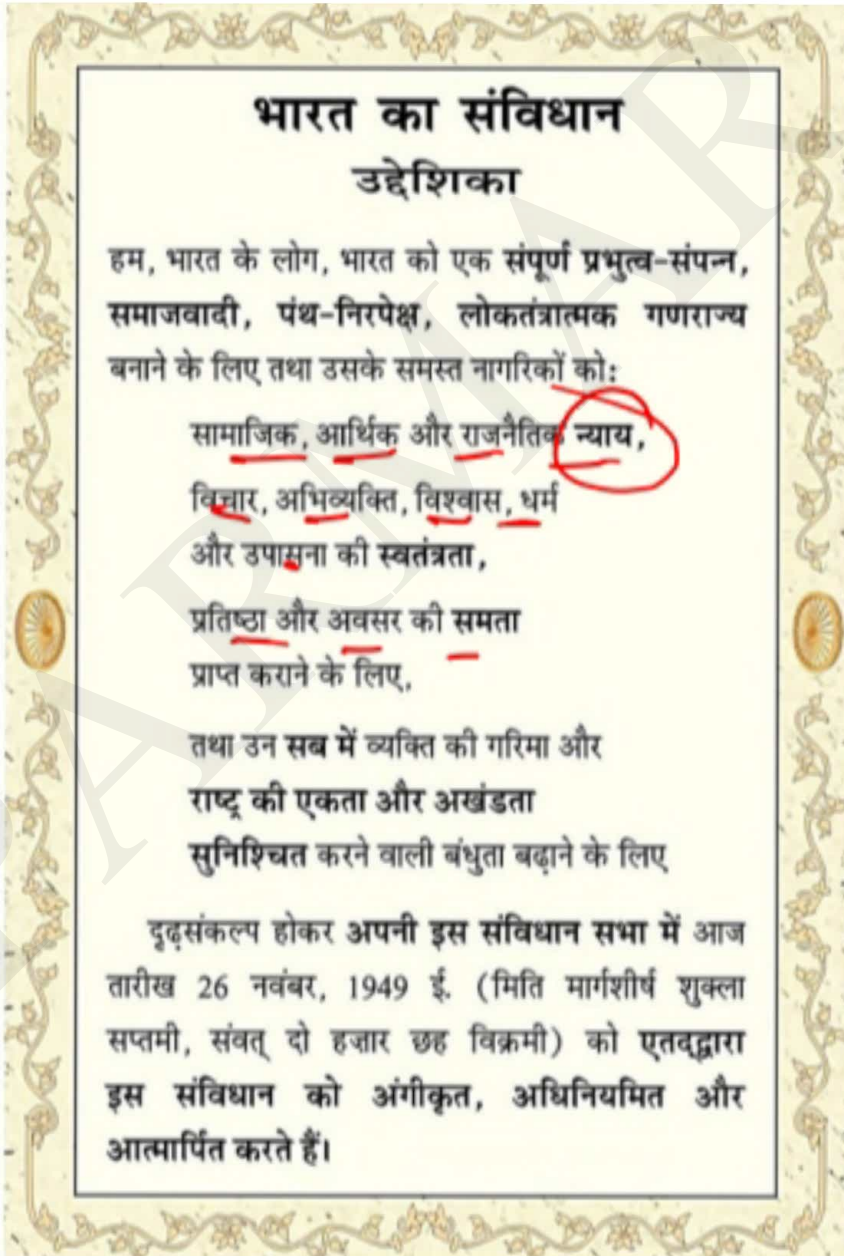 भारत का संविधान
उद्देशिका
हम, भारत के लोग, भारत को एक संपूर्ण प्रभुत्व-संपन्न,
समाजवादी, पंथ-निरपेक्ष, लोकतंत्रात्मक गणराज्य
बनाने के लिए तथा उसके समस्त नागरिकों को:
सामाजिक, आर्थिक और राजनैतिक न्याय,
विचार, अभिव्यक्ति, विश्वास, धर्म
और उपासना की स्वतंत्रता,
प्रतिष्ठा और अवसर की समता
प्राप्त कराने के लिए,
तथा उन सब में व्यक्ति की गरिमा और
राष्ट्र की एकता और अखंडता
सुनिश्चित करने वाली बंधुता बढ़ाने के लिए
दृढ़संकल्प होकर अपनी इस संविधान सभा में आज
तारीख 26 नवंबर, 1949 ई. (मिति मार्गशीर्ष शुक्ला
सप्तमी, संवत् दो हजार छह विक्रमी) को एतद्द्वारा
इस संविधान को अंगीकृत, अधिनियमित और
आत्मार्पित करते हैं।
PARMAR